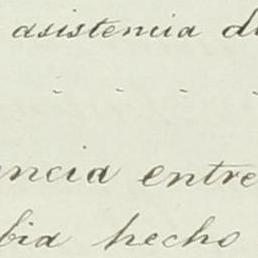 asistencia d
ncia entre
bia hecho